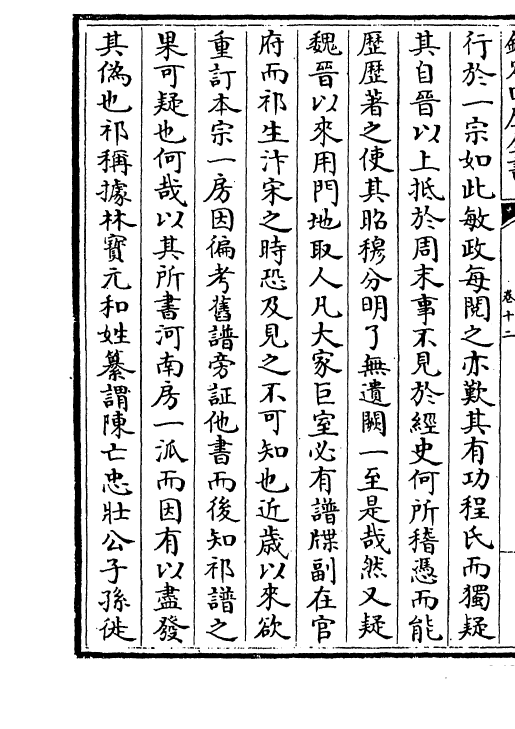 卷十二
行於一宗如此敏政每閱之亦歎其有功程氏而獨疑
其自晉以上抵於周末事不見於經史何所稽憑而能
歴歴著之使其昭穆分明了無遺闕一至是哉然又疑
魏晉以來用門地取人凡大家巨室必有譜牒副在官
府而祁生汴宋之時恐及見之不可知也近歲以來欲
重訂本宗一房因徧考舊譜旁証他書而後知祁譜之
果可疑也何哉以其所書河南房一派而因有以盡發
其偽也祁稱據林寶元和姓纂謂陳亡忠壯公子孫徙